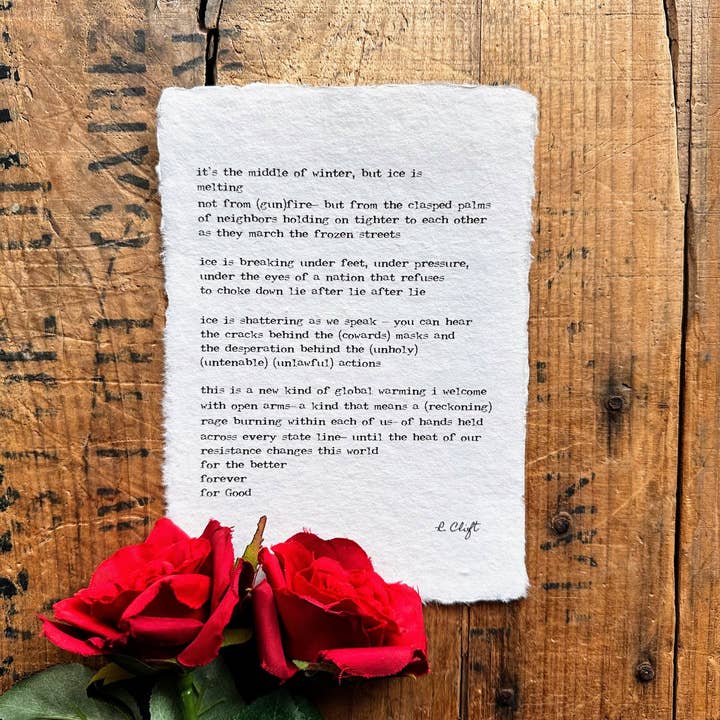 it's the middle of winter, but ice is
melting
not from (gun)fire— but from the clasped palms
of neighbors holding on tighter to each other
as they march the frozen streets
ice is breaking under feet, under pressure,
under the eyes of a nation that refuses
to choke down lie after lie after lie
ice is shattering as we speak — you can hear
the cracks behind the (cowards) masks and
the desperation behind the (unholy)
(untenable) (unlawful) actions
this is a new kind of global warming i welcome
with open arms— a kind that means a (reckoning)
rage burning within each of us— of hands held
across every state line— until the heat of our
resistance changes this world
for the better
forever
for Good
R. Clift